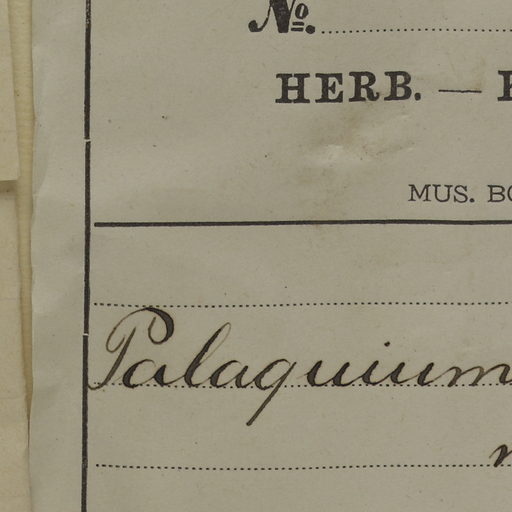 №.
HERB. —
MUS.
Palaquium